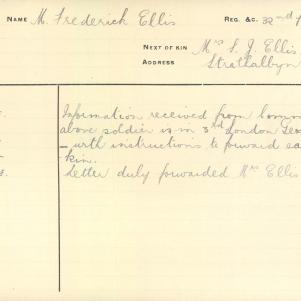 NAME M. Frederick Ellis REG. &C. 32nd
NEXT OF KIN Mrs S. J. Ellis
ADDRESS Strathalbyn
Information received from Comm
above soldier is in 3rd London Gen
– with instructions to forward ea
kin.
Letter duly forwarded Mrs Ellis